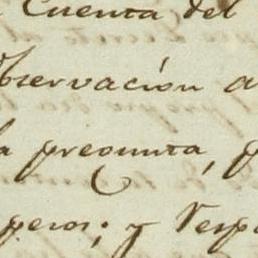 Cuenta del
bservación a
a pregunta, p
peros; y Resp